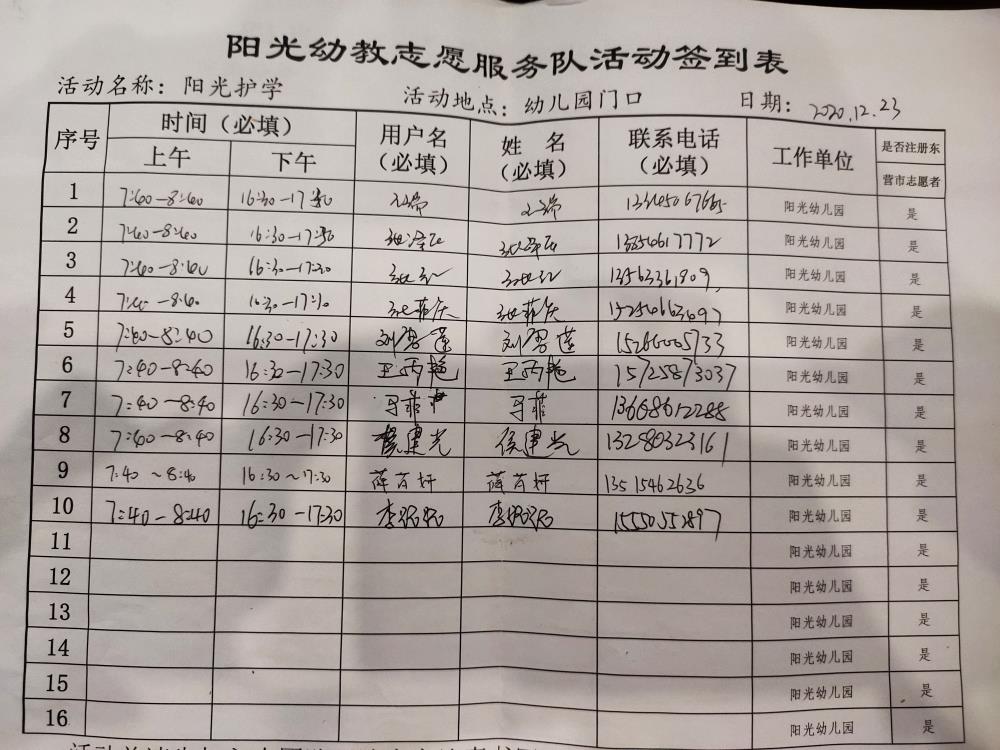 阳光幼教志愿服务队活动签到表
活动名称：阳光护学 活动地点：幼儿园门口 日期：2020.12.23
序号 时间（必填） 用户名（必填） 姓名（必填） 联系电话（必填） 工作单位 是否注册东营市志愿者
上午 下午
1 7:40-8:40 16:30-17:30 阳光幼儿园 是
2 7:40-8:40 16:30-17:30 13854617772 阳光幼儿园 是
3 7:40-8:40 16:30-17:30 13563361809 阳光幼儿园 是
4 7:40-8:40 16:30-17:30 阳光幼儿园 是
5 7:40-8:40 16:30-17:30 阳光幼儿园 是
6 7:40-8:40 16:30-17:30 王丙艳 王丙艳 15725873037 阳光幼儿园 是
7 7:40-8:40 16:30-17:30 13668612288 阳光幼儿园 是
8 7:40-8:40 16:30-17:30 侯建光 13280323161 阳光幼儿园 是
9 7:40~8:40 16:30~17:30 13515462636 阳光幼儿园 是
10 7:40-8:40 16:30-17:30 15550552897 阳光幼儿园 是
11 阳光幼儿园 是
12 阳光幼儿园 是
13 阳光幼儿园 是
14 阳光幼儿园 是
15 阳光幼儿园 是
16 阳光幼儿园 是